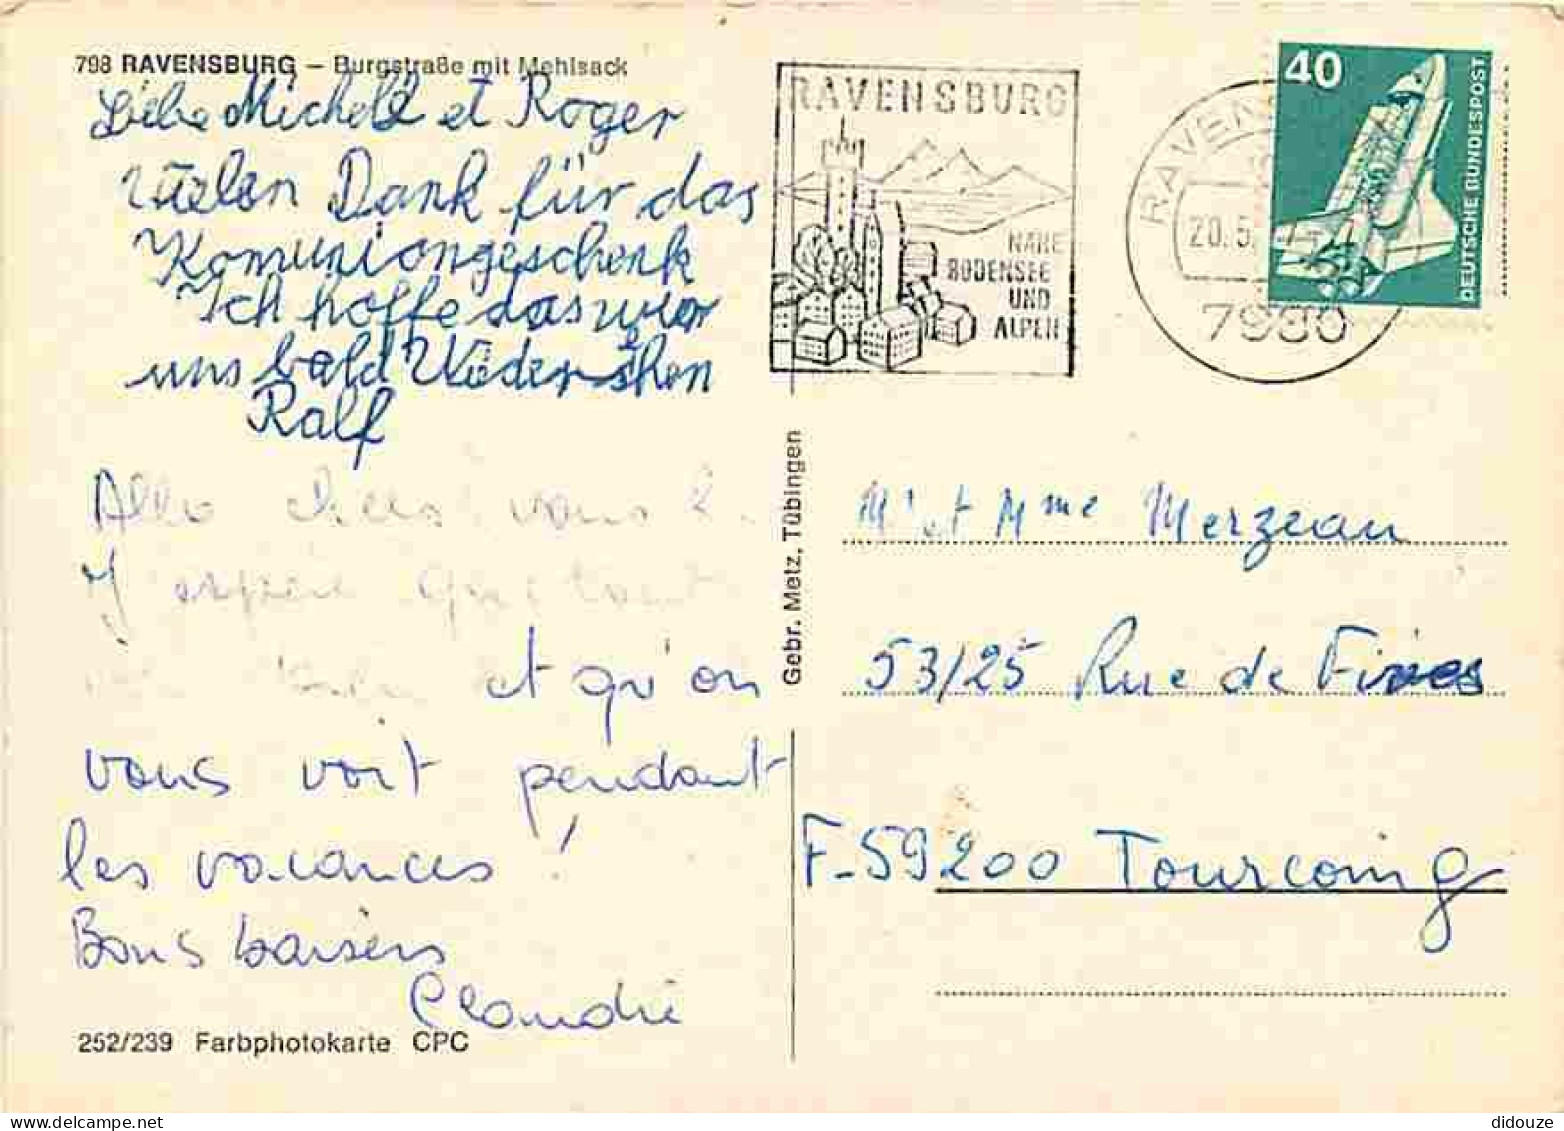 798 RAVENSBURG – Burgstraße mit Mehlsack
Liebe Michelè et Roger
vielen Dank für das
Komuniongeschenk
Ich hoffe das wir
uns bald Wiedersehen
Ralf
Allo chers vous 2.
J'espère que tout
et qu'on
vous voit pendant
les vacances !
Bons baisers
Claudie
252/239 Farbphotokarte CPC
Gebr. Metz, Tübingen
RAVENSBURG
NAHE
BODENSEE
UND
ALPEN
RAVEN
20.5.
7980
40
DEUTSCHE BUNDESPOST
Mr et Mme Merzeau
53/25 Rue de
F-59200 Tourcoing
didouze